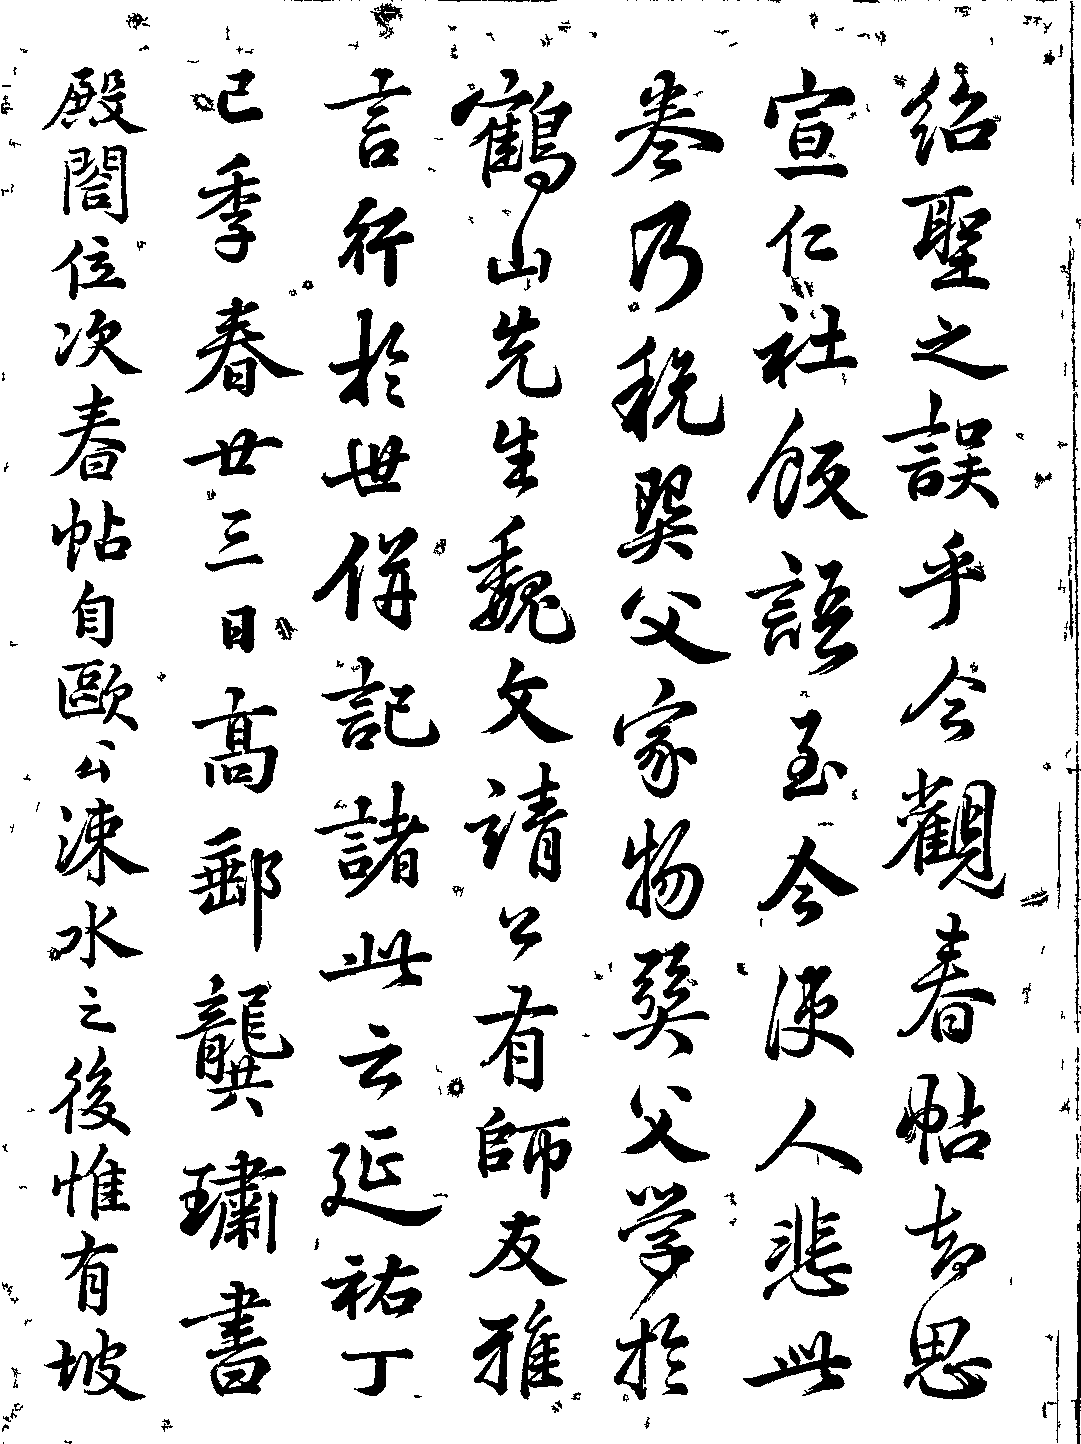 紹聖之誤乎今觀春帖却思
宣仁社飯語至今使人悲此
卷乃稅巽父家物巽父学於
鶴山先生魏文靖公有師友雅
言行於世併記諸此云延祐丁
巳季春廿三日高郵龔璛書
殿閣位次春帖自歐公涑水之後惟有坡